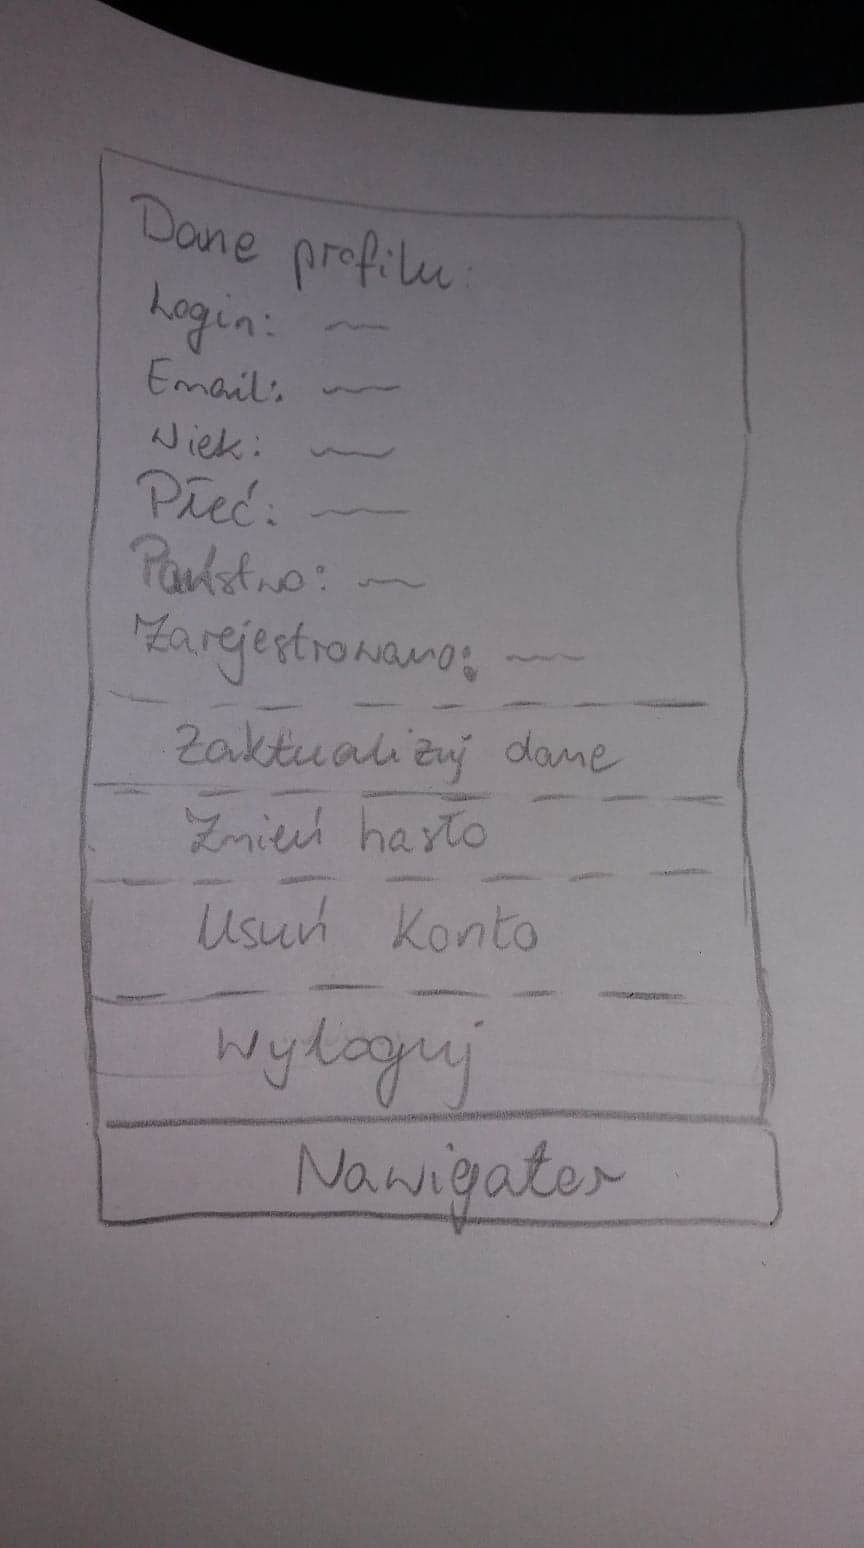 Dane profilu:
Login:
Email:
Wiek:
Płeć:
Państwo:
Zarejestrowano:
Zaktualizuj dane
Zmień hasło
Usuń konto
Wyloguj
Nawigater